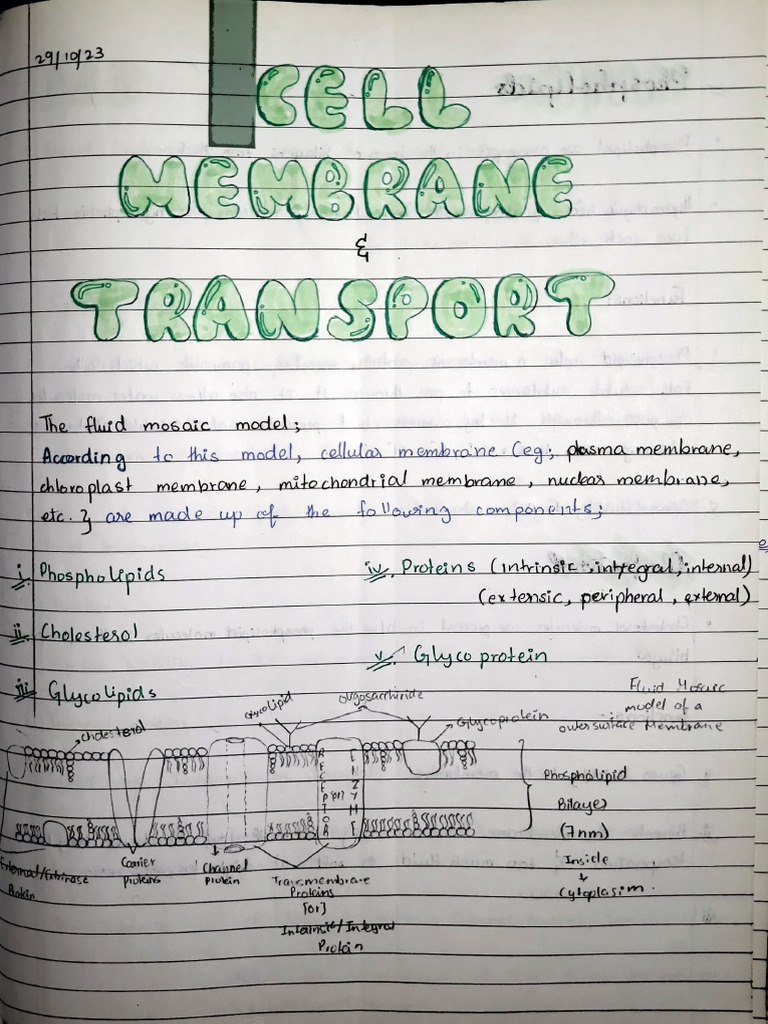 29/10/23
CELL
MEMBRANE
&
TRANSPORT
The fluid mosaic model;
According to this model, cellular membrane (eg; plasma membrane,
chloroplast membrane, mitochondrial membrane, nuclear membrane,
etc. } are made up of the following components;
i. Phospholipids
ii. Cholesterol
iii. Glycolipids
iv. Proteins (intrinsic, integral, internal)
(extensic, peripheral, external)
v. Glycoprotein
Fluid Mosaic
model of a
outersurface Membrane
cholesterol
Glycolipid
oligosaccharide
Glycoprotein
RECEPTOR
(or)
ENZYME
Phospholipid
Bilayer
(7nm)
Inside
Cytoplasim.
External/Extrinsic
Protein
Carrier
Proteins
Channel
Protein
Transmembrane
Proteins
[or]
Intrinsic/Integral
Protein